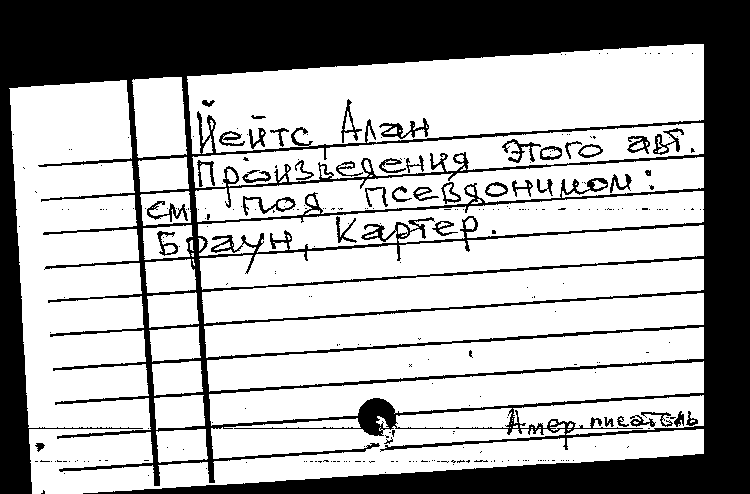 Йейтс, Алан
Произведения этого авт.
см. под псевдонимом:
Браун, Картер.
Амер. писатель